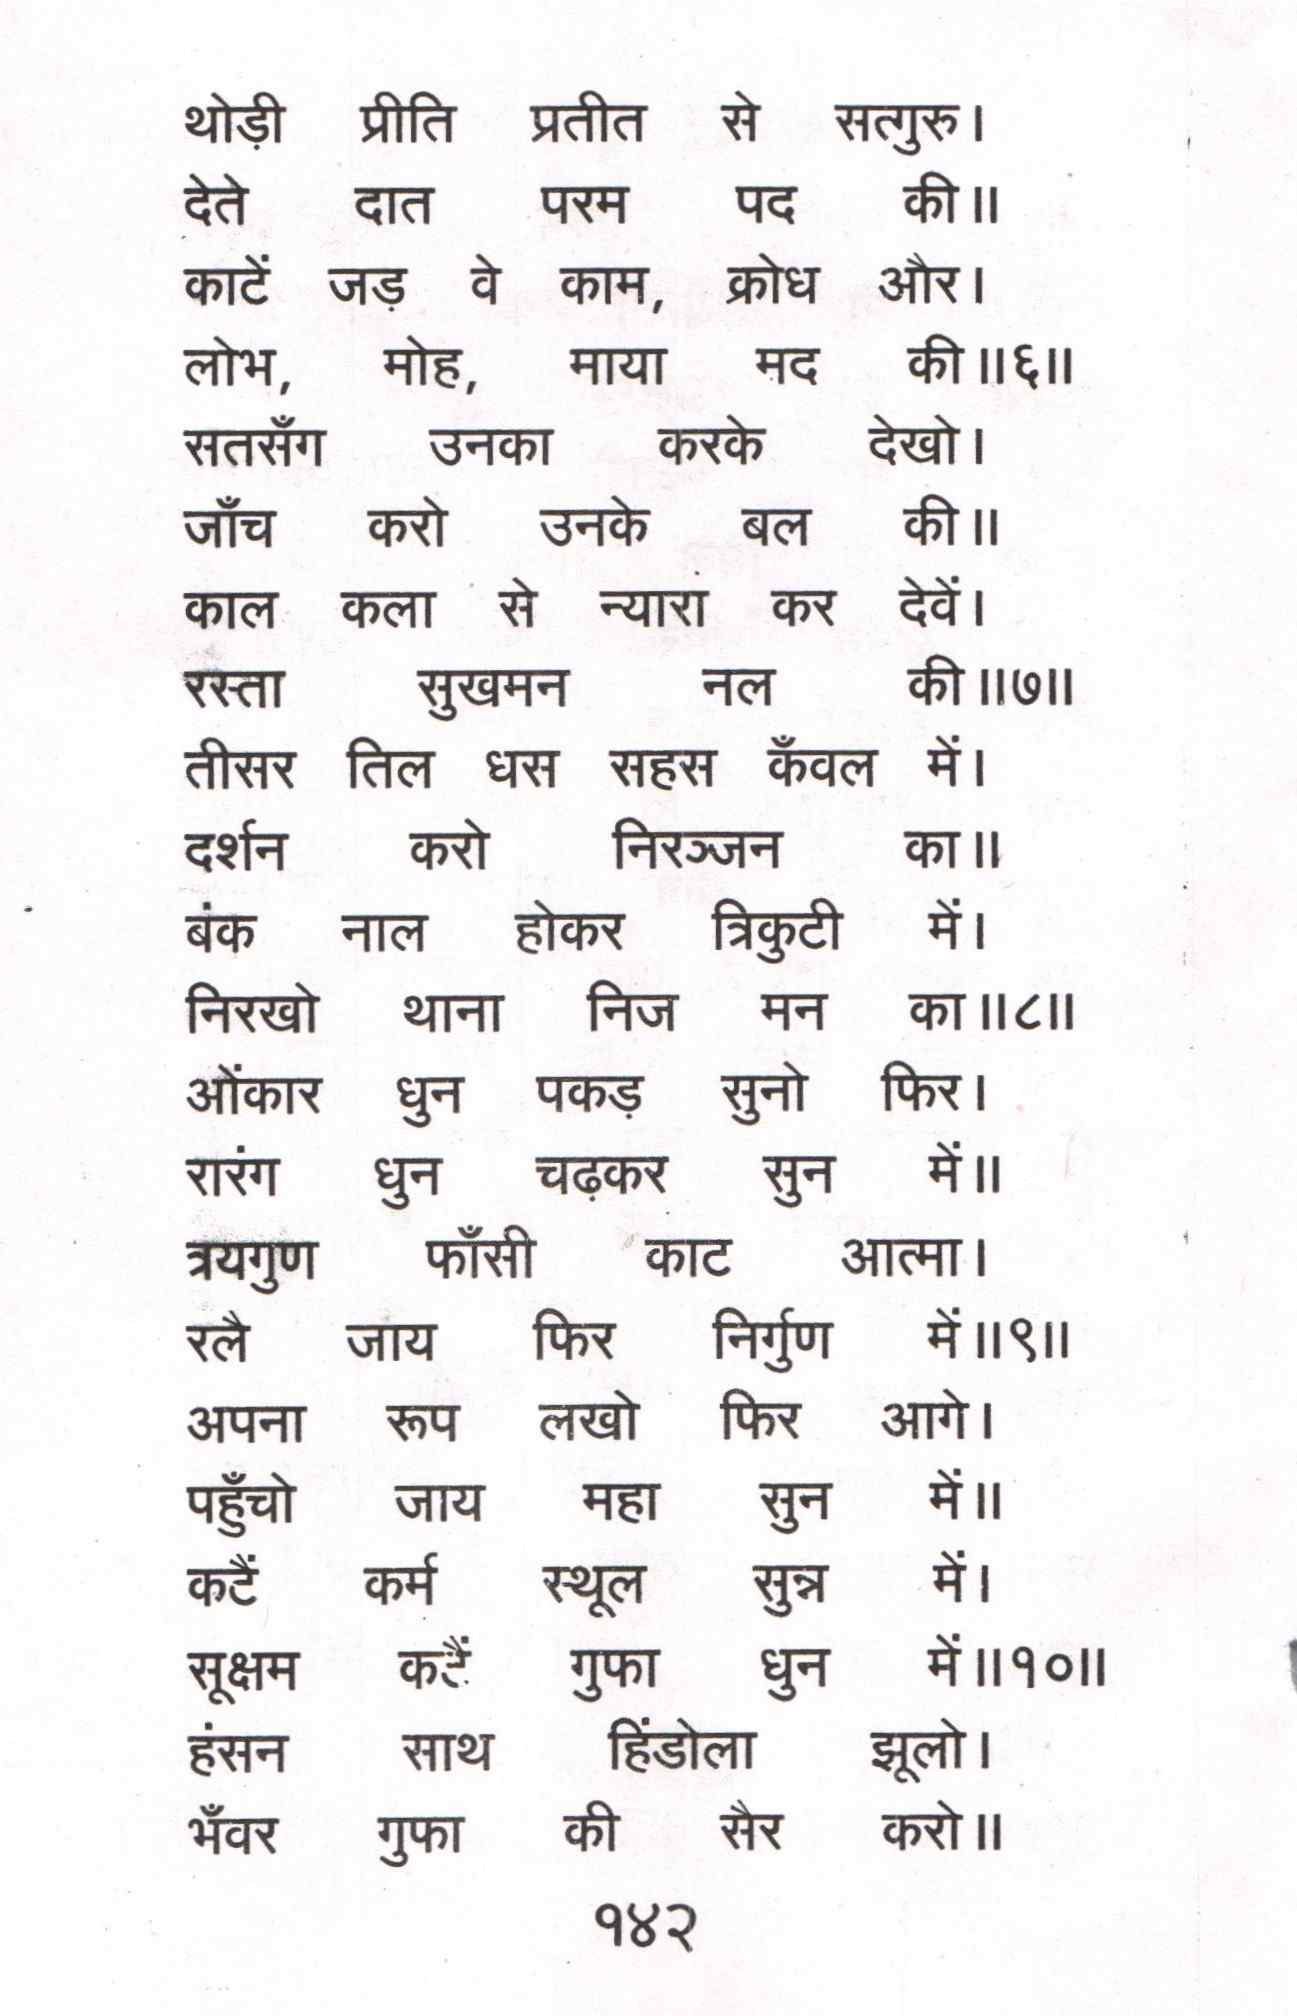 थोड़ी प्रीति प्रतीत से सत्गुरु।
देते दात परम पद की॥
काटें जड़ वे काम, क्रोध और।
लोभ, मोह, माया मद की॥६॥
सतसँग उनका करके देखो।
जाँच करो उनके बल की॥
काल कला से न्यारा कर देवें।
रस्ता सुखमन नल की॥७॥
तीसर तिल धस सहस कँवल में।
दर्शन करो निरञ्जन का॥
बंक नाल होकर त्रिकुटी में।
निरखो थाना निज मन का॥८॥
ओंकार धुन पकड़ सुनो फिर।
रारंग धुन चढ़कर सुन में॥
त्रयगुण फाँसी काट आत्मा।
रलै जाय फिर निर्गुण में॥९॥
अपना रूप लखो फिर आगे।
पहुँचो जाय महा सुन में॥
कटैं कर्म स्थूल सुन्न में।
सूक्षम कटैं गुफा धुन में॥१०॥
हंसन साथ हिंडोला झूलो।
भँवर गुफा की सैर करो॥
१४२